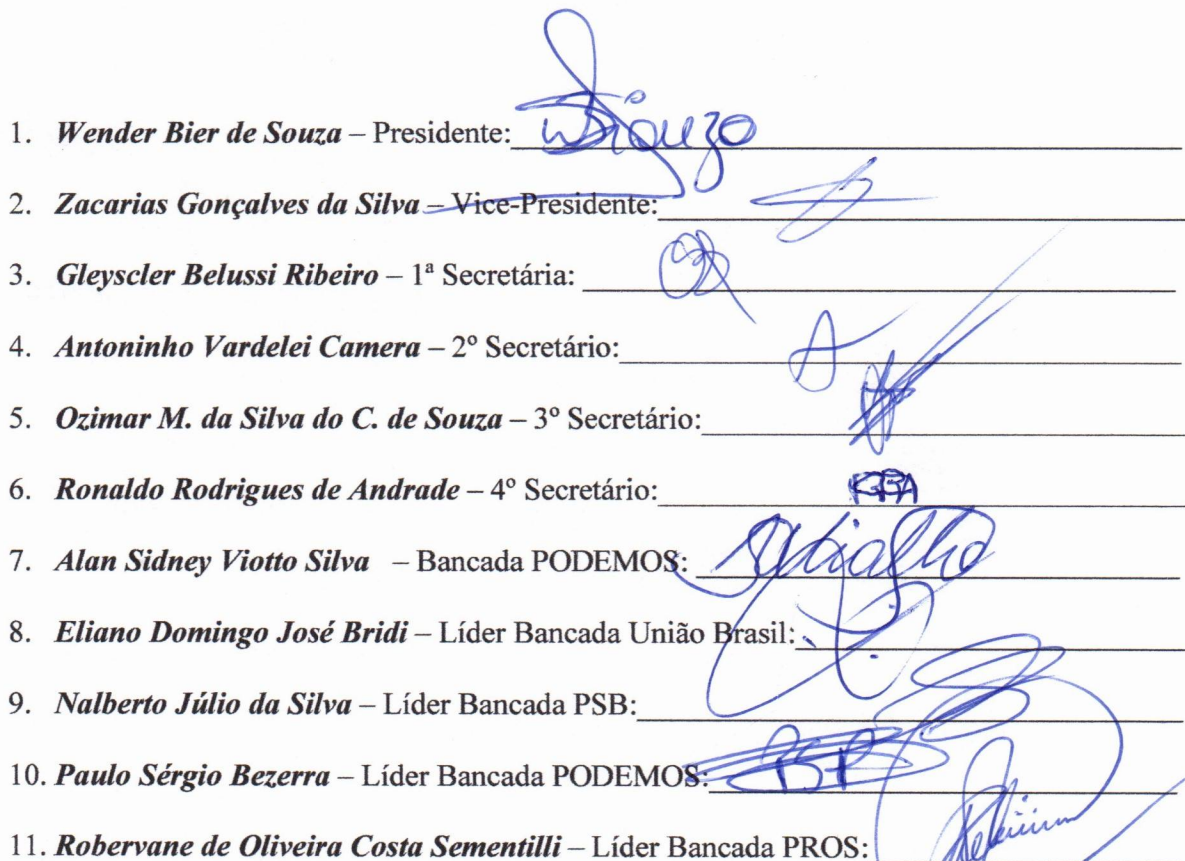 1. Wender Bier de Souza – Presidente:
2. Zacarias Gonçalves da Silva – Vice-Presidente:
3. Gleyscler Belussi Ribeiro – 1ª Secretária:
4. Antoninho Vardelei Camera – 2º Secretário:
5. Ozimar M. da Silva do C. de Souza – 3º Secretário:
6. Ronaldo Rodrigues de Andrade – 4º Secretário: RRA
7. Alan Sidney Viotto Silva – Bancada PODEMOS:
8. Eliano Domingo José Bridi – Líder Bancada União Brasil:
9. Nalberto Júlio da Silva – Líder Bancada PSB:
10. Paulo Sérgio Bezerra – Líder Bancada PODEMOS:
11. Robervane de Oliveira Costa Sementilli – Líder Bancada PROS: